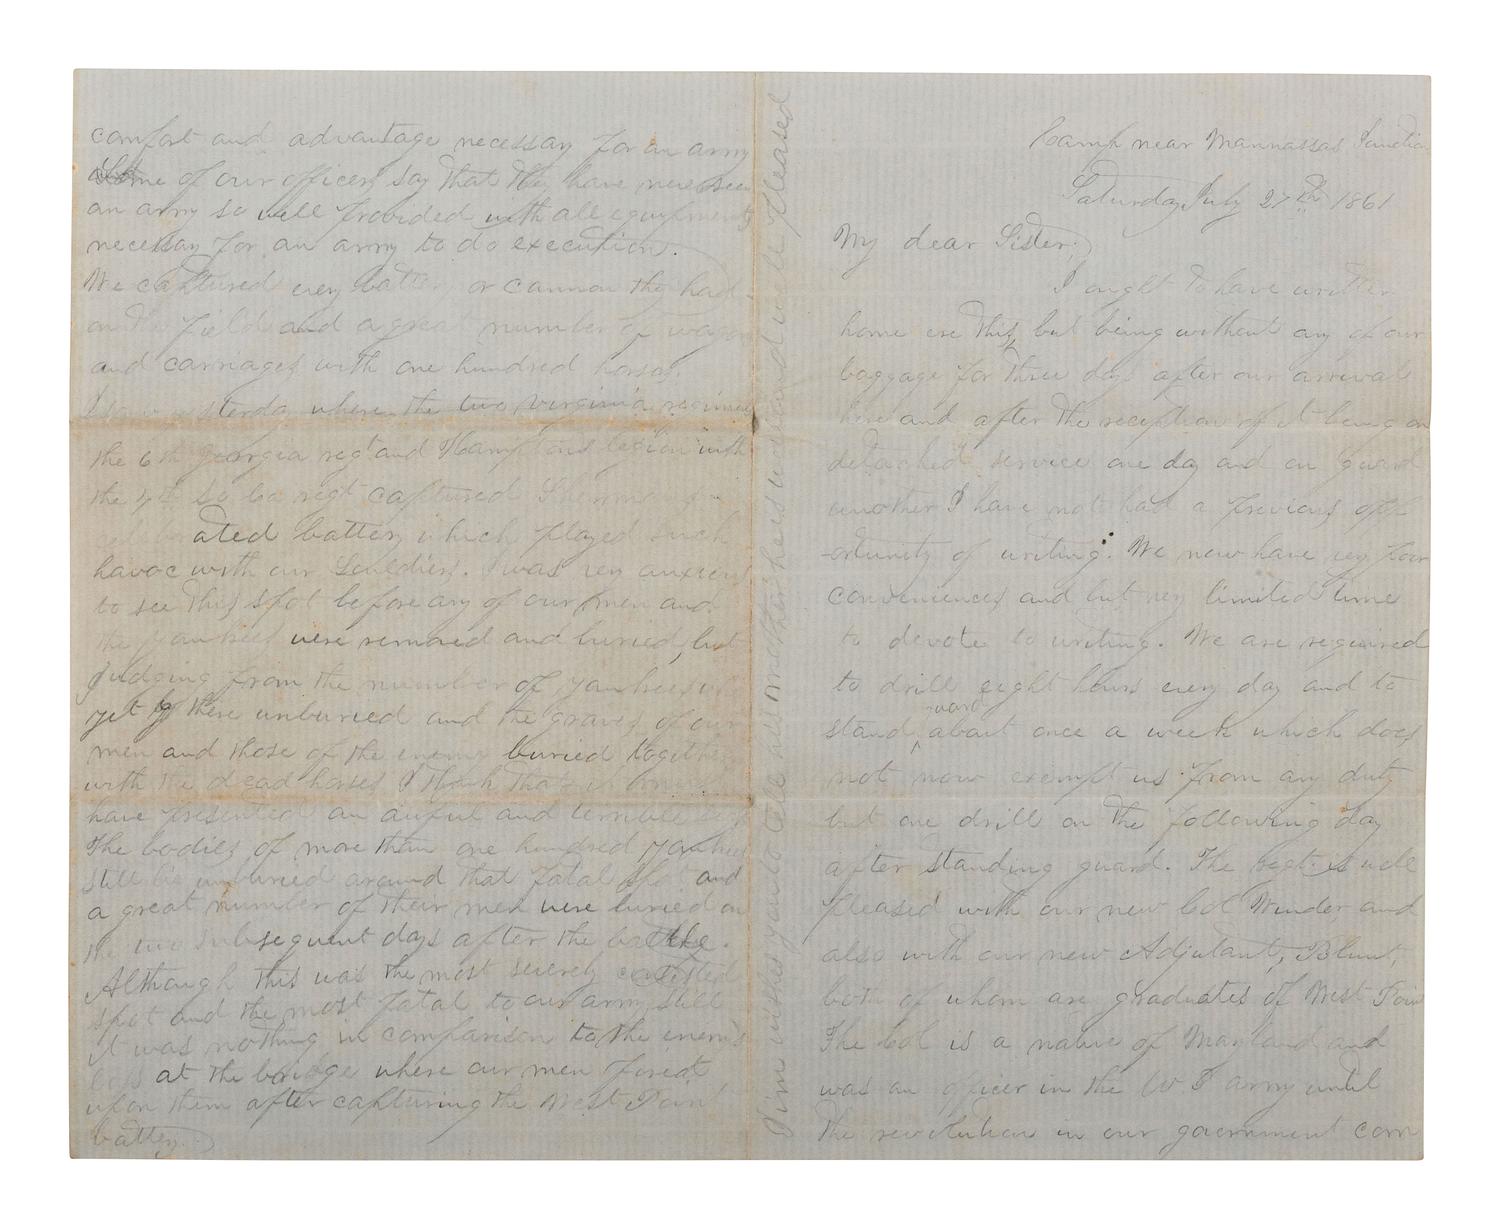 Camp near Mannassas Junction
Saturday July 27th 1861
My dear Sister;
I ought to have written
home ere this, but being without any of our
baggage for three days after our arrival
here and after the reception of it being on
detached service one day and on guard
another I have not had a previous opp
-ortunity of writing. We now have very poor
conveniences and but very limited time
to devote to writing. We are required
to drill eight hours every day and to
guard
stand about once a week which does
not now exempt us from any duty
but one drill on the following day
after standing guard. The regt is well
pleased with our new Col Winder, and
also with our new Adjutant, Blunt,
both of whom are graduates of West Point
The Col is a native of Maryland and
was an officer in the U S army until
the revolution in our government com
comfort and advantage necessary for an army
Some of our officers say that they have never seen
an army so well provided with all equipments
necessary for an army to do execution.
We captured every battery or cannon they had
on the field and a great number of wagons
and carriages with one hundred horses.
I saw yesterday where the two virginia regiments
the 6th georgia regt and Hampton's legion with
the 4th So Ca regt captured Sherman's
celebrated battery which played such
havoc with our Souldiers. I was very anxious
to see this spot before any of our men and
the yankees were removed and buried, but
judging from the number of yankees who
yet lay there unburied and the graves of our
men and those of the enemy buried together
with the dead horses I think that it must
have presented an awful and terrible sight
The bodies of more than one hundred yankees
still lie unburied around that fatal spot and
a great number of their men were buried on
the two subsequent days after the battle.
Although this was the most severely contested
spot and the most fatal to our army still
it was nothing in comparison to the enemys
loss at the bridge where our men fired
upon them after capturing the West Point
battery.
Jim wishes you to tell his mother he is well and well pleased